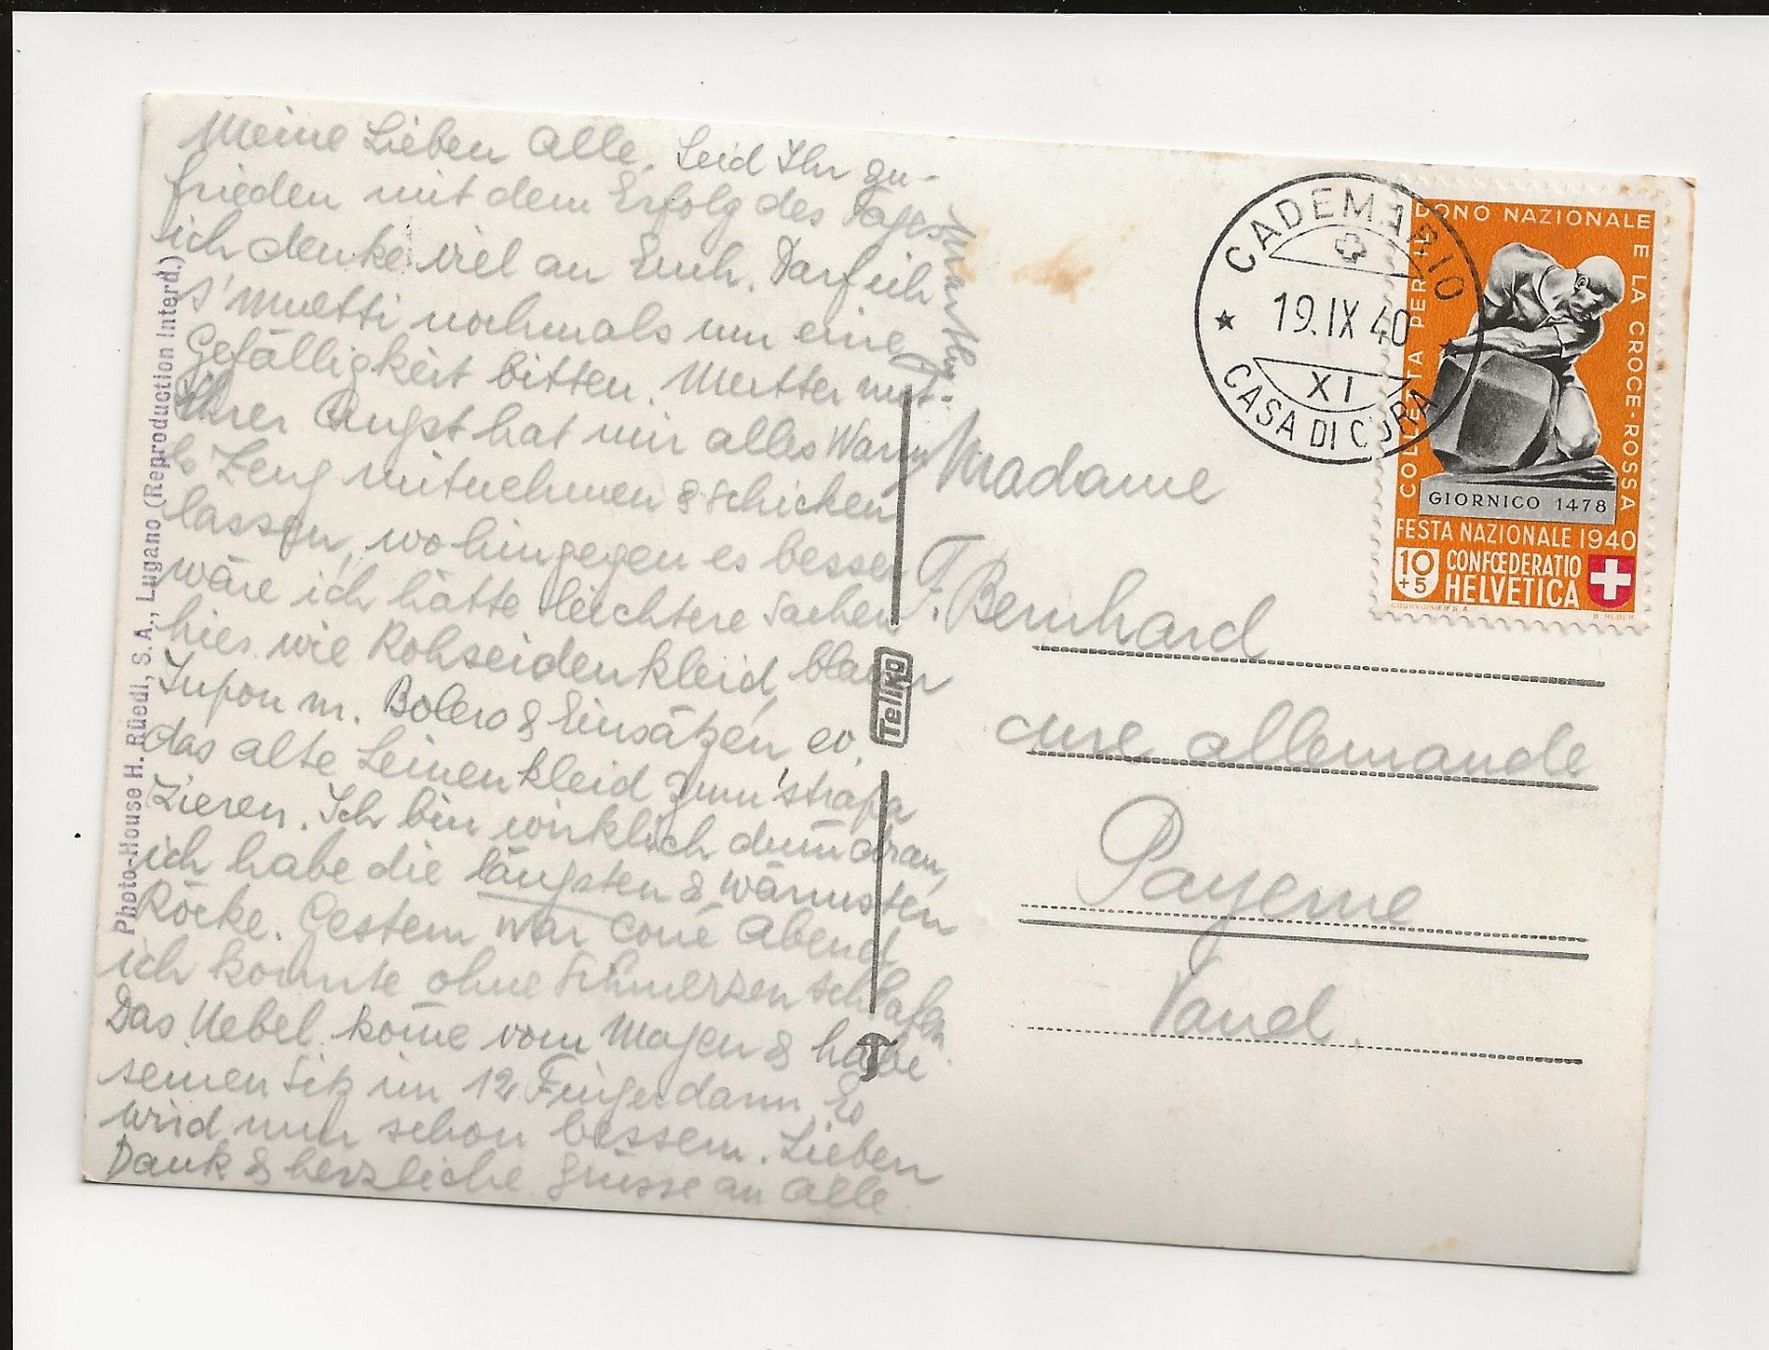 Meine Lieben Alle. Seid Ihr zu-
frieden mit dem Erfolg des Tages
ich denke viel an Euch. Darf ich
s'Muetti nochmals um eine
Gefälligkeit bitten. Mutter mit
Ihrer Angst hat mir alles Warm
Zeug mitnehmen & schicken
lassen, wohingegen es besser
wäre ich hätte leichtere Sachen
hier wie Rohseidenkleid, blauen
Jupon m. Bolero & Einsätzen, ev.
das alte Leinenkleid zum 'strapa
zieren. Ich bin wirklich dum̄ dran,
ich habe die längsten & wärmsten
Röcke. Gestern war Abend
ich konnte ohne Schmerzen schlafen.
Das Uebel kom̄e vom Magen & habe
seinen Sitz im 12 Fingerdarm. Es
wird nun schon bessern. Lieben
Dank & herzliche Grüsse an Alle
Photo-House H. Rüedi, S.A., Lugano (Reproduction interd.)
Tellko
Madame
F. Bernhard
cure allemande
Payerne
Vaud.
CADEMARIO
19.IX 40
XI
CASA DI CURA
COLLETTA PER IL DONO NAZIONALE E LA CROCE-ROSSA
GIORNICO 1478
FESTA NAZIONALE 1940
10+5
CONFŒDERATIO
HELVETICA
COURVOISIER S.A.